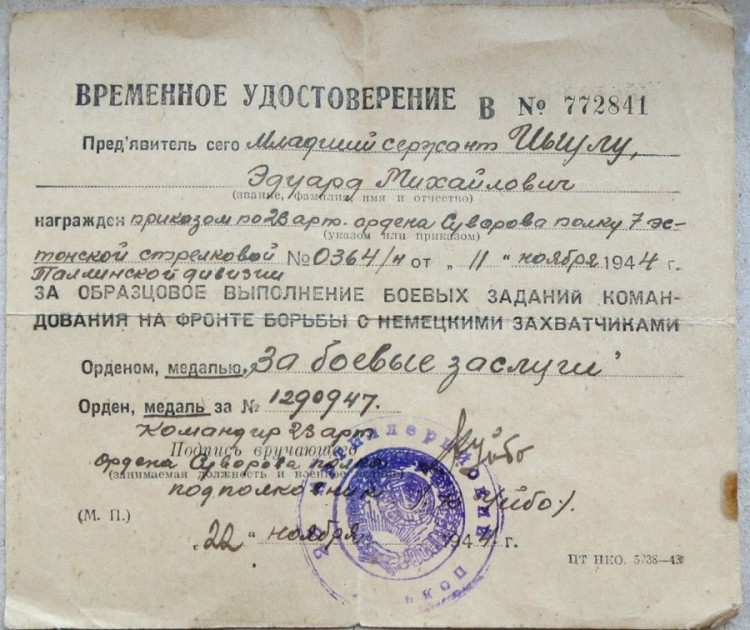 ВРЕМЕННОЕ УДОСТОВЕРЕНИЕ В № 772841
Пред'явитель сего Младший сержант
Эдуард Михайлович
(звание, фамилия, имя и отчество)
награжден приказом по 23 арт. ордена Суворова полку 7 эс-
(указом или приказом)
тонской стрелковой № 0364/н от „ 11 " ноября 1944 г.
Таллинской дивизии
ЗА ОБРАЗЦОВОЕ ВЫПОЛНЕНИЕ БОЕВЫХ ЗАДАНИЙ КОМАН-
ДОВАНИЯ НА ФРОНТЕ БОРЬБЫ С НЕМЕЦКИМИ ЗАХВАТЧИКАМИ
Орденом, медалью „За боевые заслуги"
Орден, медаль за № 1290947.
Командир 23 арт
Подпись вручающего
ордена Суворова полка
(занимаемая должность и военное звание)
подполковник
(М. П.)
„ 22 " ноября 1944 г.
ПТ НКО.